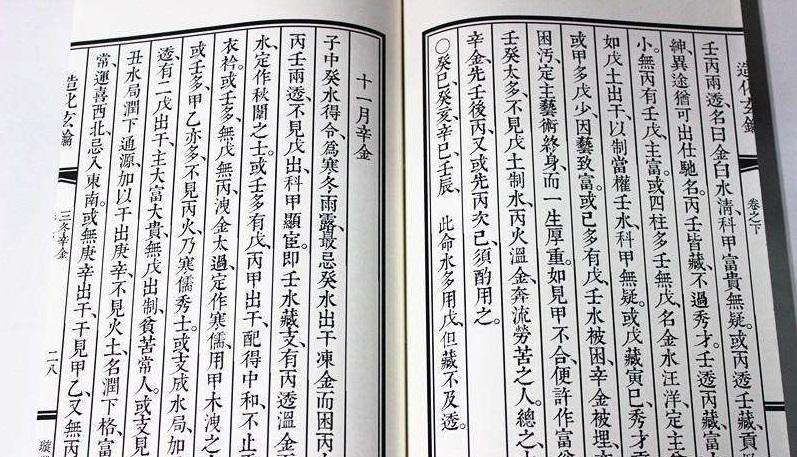 造化玄鑰
卷之下
壬丙兩透名曰金白水清科甲富貴無疑、或丙透壬藏、貢
紳、異途猶可出仕馳名丙壬皆藏、不過秀才。壬透丙藏、富
小。無丙有壬戊、主富。或四柱多壬無戊、名金水汪洋定主
如戊土出干以制當權壬水、科甲無疑。或戊藏寅巳、秀才
或甲多戊少、因藝致富。或己多有戊、壬水被困、辛金被埋、
困汚定主藝術終身、而一生厚重。如見甲不合、便許作富
壬癸太多、不見戊土制水、丙火溫金、奔流勞苦之人。總之、
辛金先壬後丙、又或先丙次己、須酌用之。
〇癸巳、癸亥、辛巳、壬辰、 此命水多用戊、但藏不及透。
十一月辛金
子中癸水得令、爲寒冬雨露、最忌癸水出干凍金而困丙
丙壬兩透、不見戊出、科甲顯宦。即壬水藏支、有丙透溫金
水、定作秋闈之士。或壬多有戊、丙甲出干、配得中和、不止
衣衿。或壬多、無戊無丙、洩金太過、定作寒儒、用甲木洩之
或壬多、甲乙亦多、不見丙火、乃寒儒秀士。或支成水局、加
透有二戊出干、主大富大貴、無戊出制、貧苦常人。或支見
丑水局、潤下通源、加以干出庚辛、不見火土、名潤下格、富
常、運喜西北、忌入東南。或無庚辛出干、干見甲乙、又無丙
造化玄鑰
三冬辛金
二八